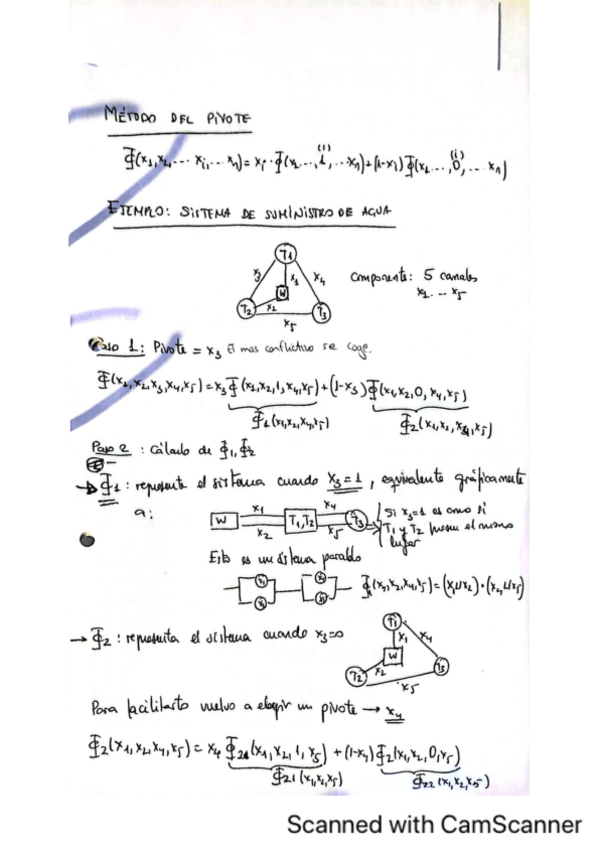 MÉTODO DEL PIVOTE
Φ(x₁,x₂,... xᵢ,... xₙ) = xᵢ · Φ(x₁...,1⁽ⁱ⁾,...xₙ) + (1-xᵢ) Φ(x₁...,0⁽ⁱ⁾,... xₙ)
EJEMPLO: SISTEMA DE SUMINISTRO DE AGUA
T1
x3 x1 x4
W
T2 x2 T3
x5
Componente: 5 canales
x1 ... x5
Paso 1: Pivote = x3 El mas conflictivo se coge.
Φ(x1,x2,x3,x4,x5) = x3 Φ(x1,x2,1,x4,x5) + (1-x3) Φ(x1,x2,0,x4,x5)
Φ1(x1,x2,x4,x5) Φ2(x1,x2,x4,x5)
Paso 2: Cálculo de Φ1, Φ2
→ Φ1: representa el sistema cuando x3=1, equivalente gráficamente
a:
W x1 x2 T1,T2 x4 x5 T3
Si x3=1 es como si
T1 y T2 el mismo
lugar
Esto es un sistema paralelo
x1 x2 x4 x5
Φ1(x1,x2,x4,x5) = (x1⊔x2)·(x4⊔x5)
→ Φ2: representa el sistema cuando x3=0
T1
x1 x4
W
T2 x2 T3
x5
Para facilitarlo vuelvo a elegir un pivote → x4
Φ2(x1,x2,x4,x5) = x4 Φ21(x1,x2,1,x5) + (1-x4) Φ2(x1,x2,0,x5)
Φ21(x1,x2,x5) Φ22(x1,x2,x5)
Scanned with CamScanner